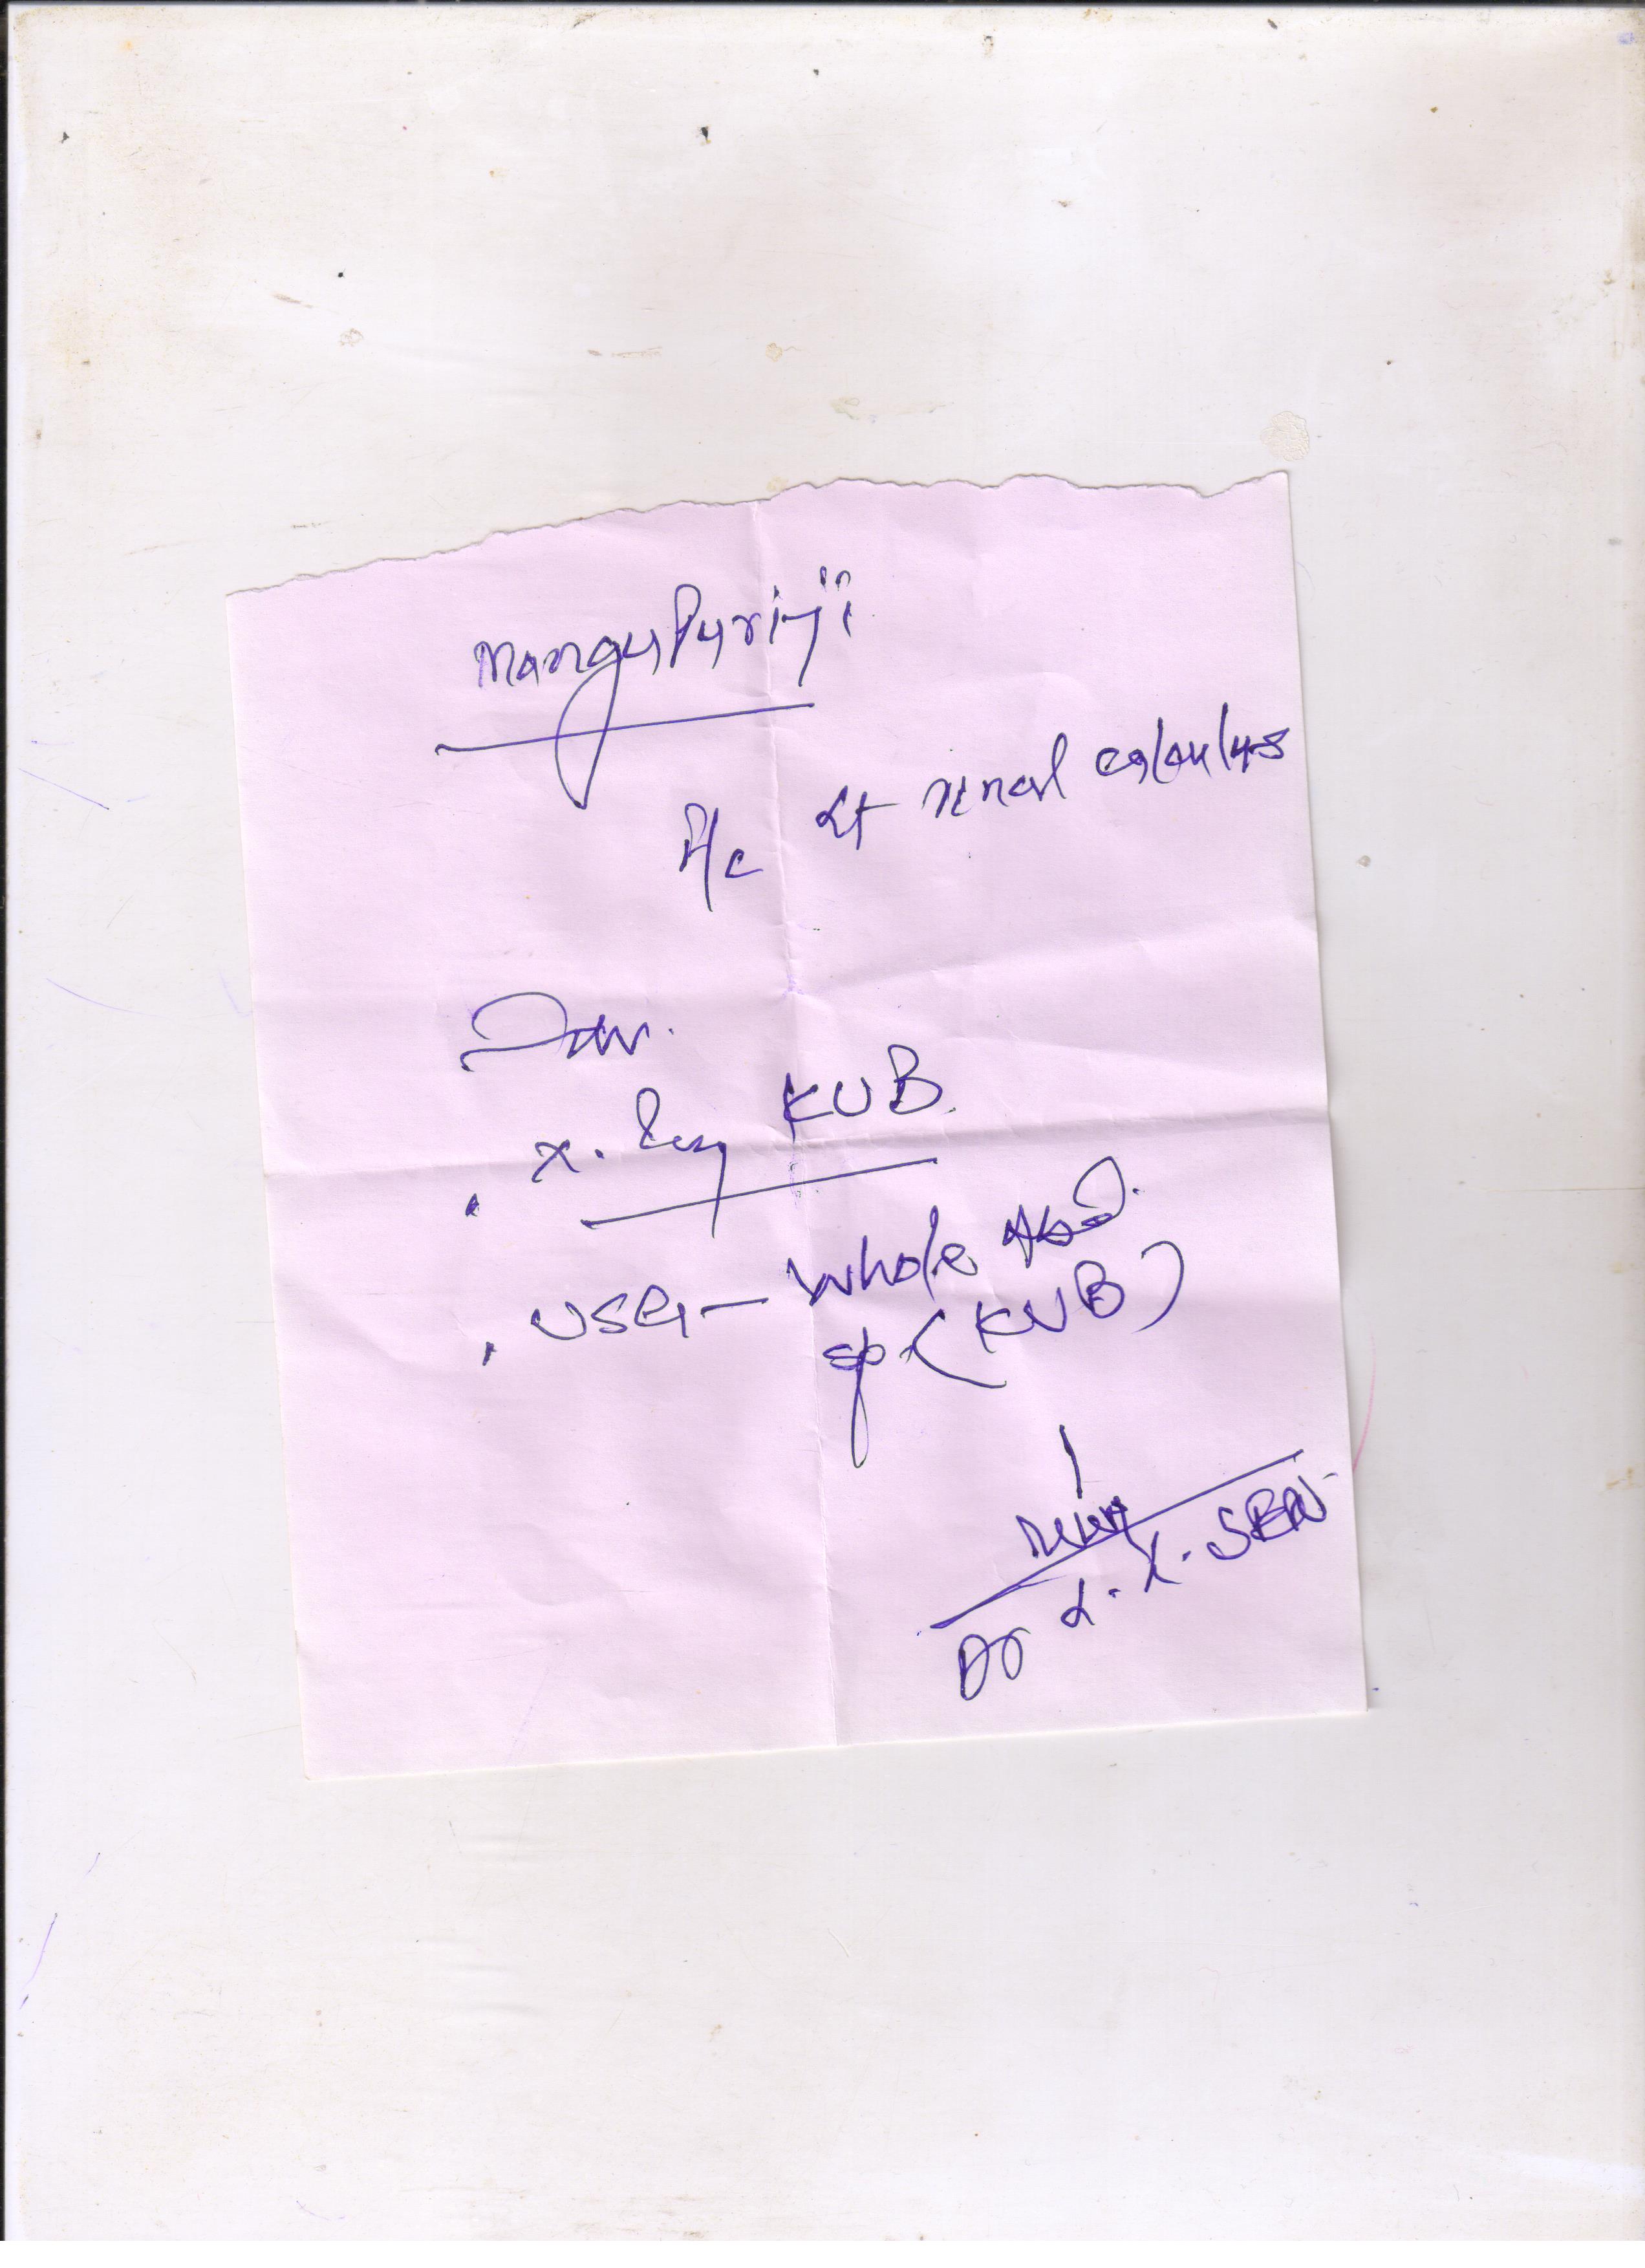 Mangupuriji
H/c Lt renal calculus
Adv.
. X. Ray KUB
. USG - Whole Abd.
sp. (KUB)
Dr L. X. SEN